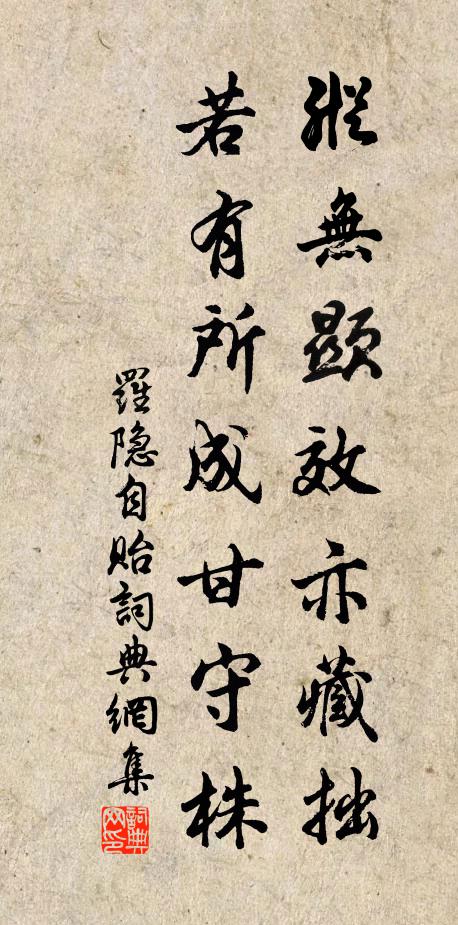 縱無顯效亦藏拙
若有所成甘守株
羅隐自貽詞典網集
詞典網印